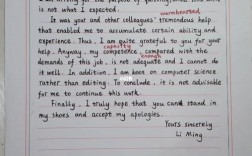 is not what I expected.
warmhearted
It was your and other colleagues' tremendous help
that enabled me to accumulate certain ability and
experience. Thus, I am quite grateful to you for your
help. Anyway, my competence, compared with the
capacity
demands of this job, is not adequate and I cannot do
enough
it well. In addition, I am keen on computer science
rather than editing. To conclude, it is not advisable
for me to continue this work.
Finally, I truly hope that you can stand in
my shoes and accept my apologies.
Yours sincerely
Li Ming